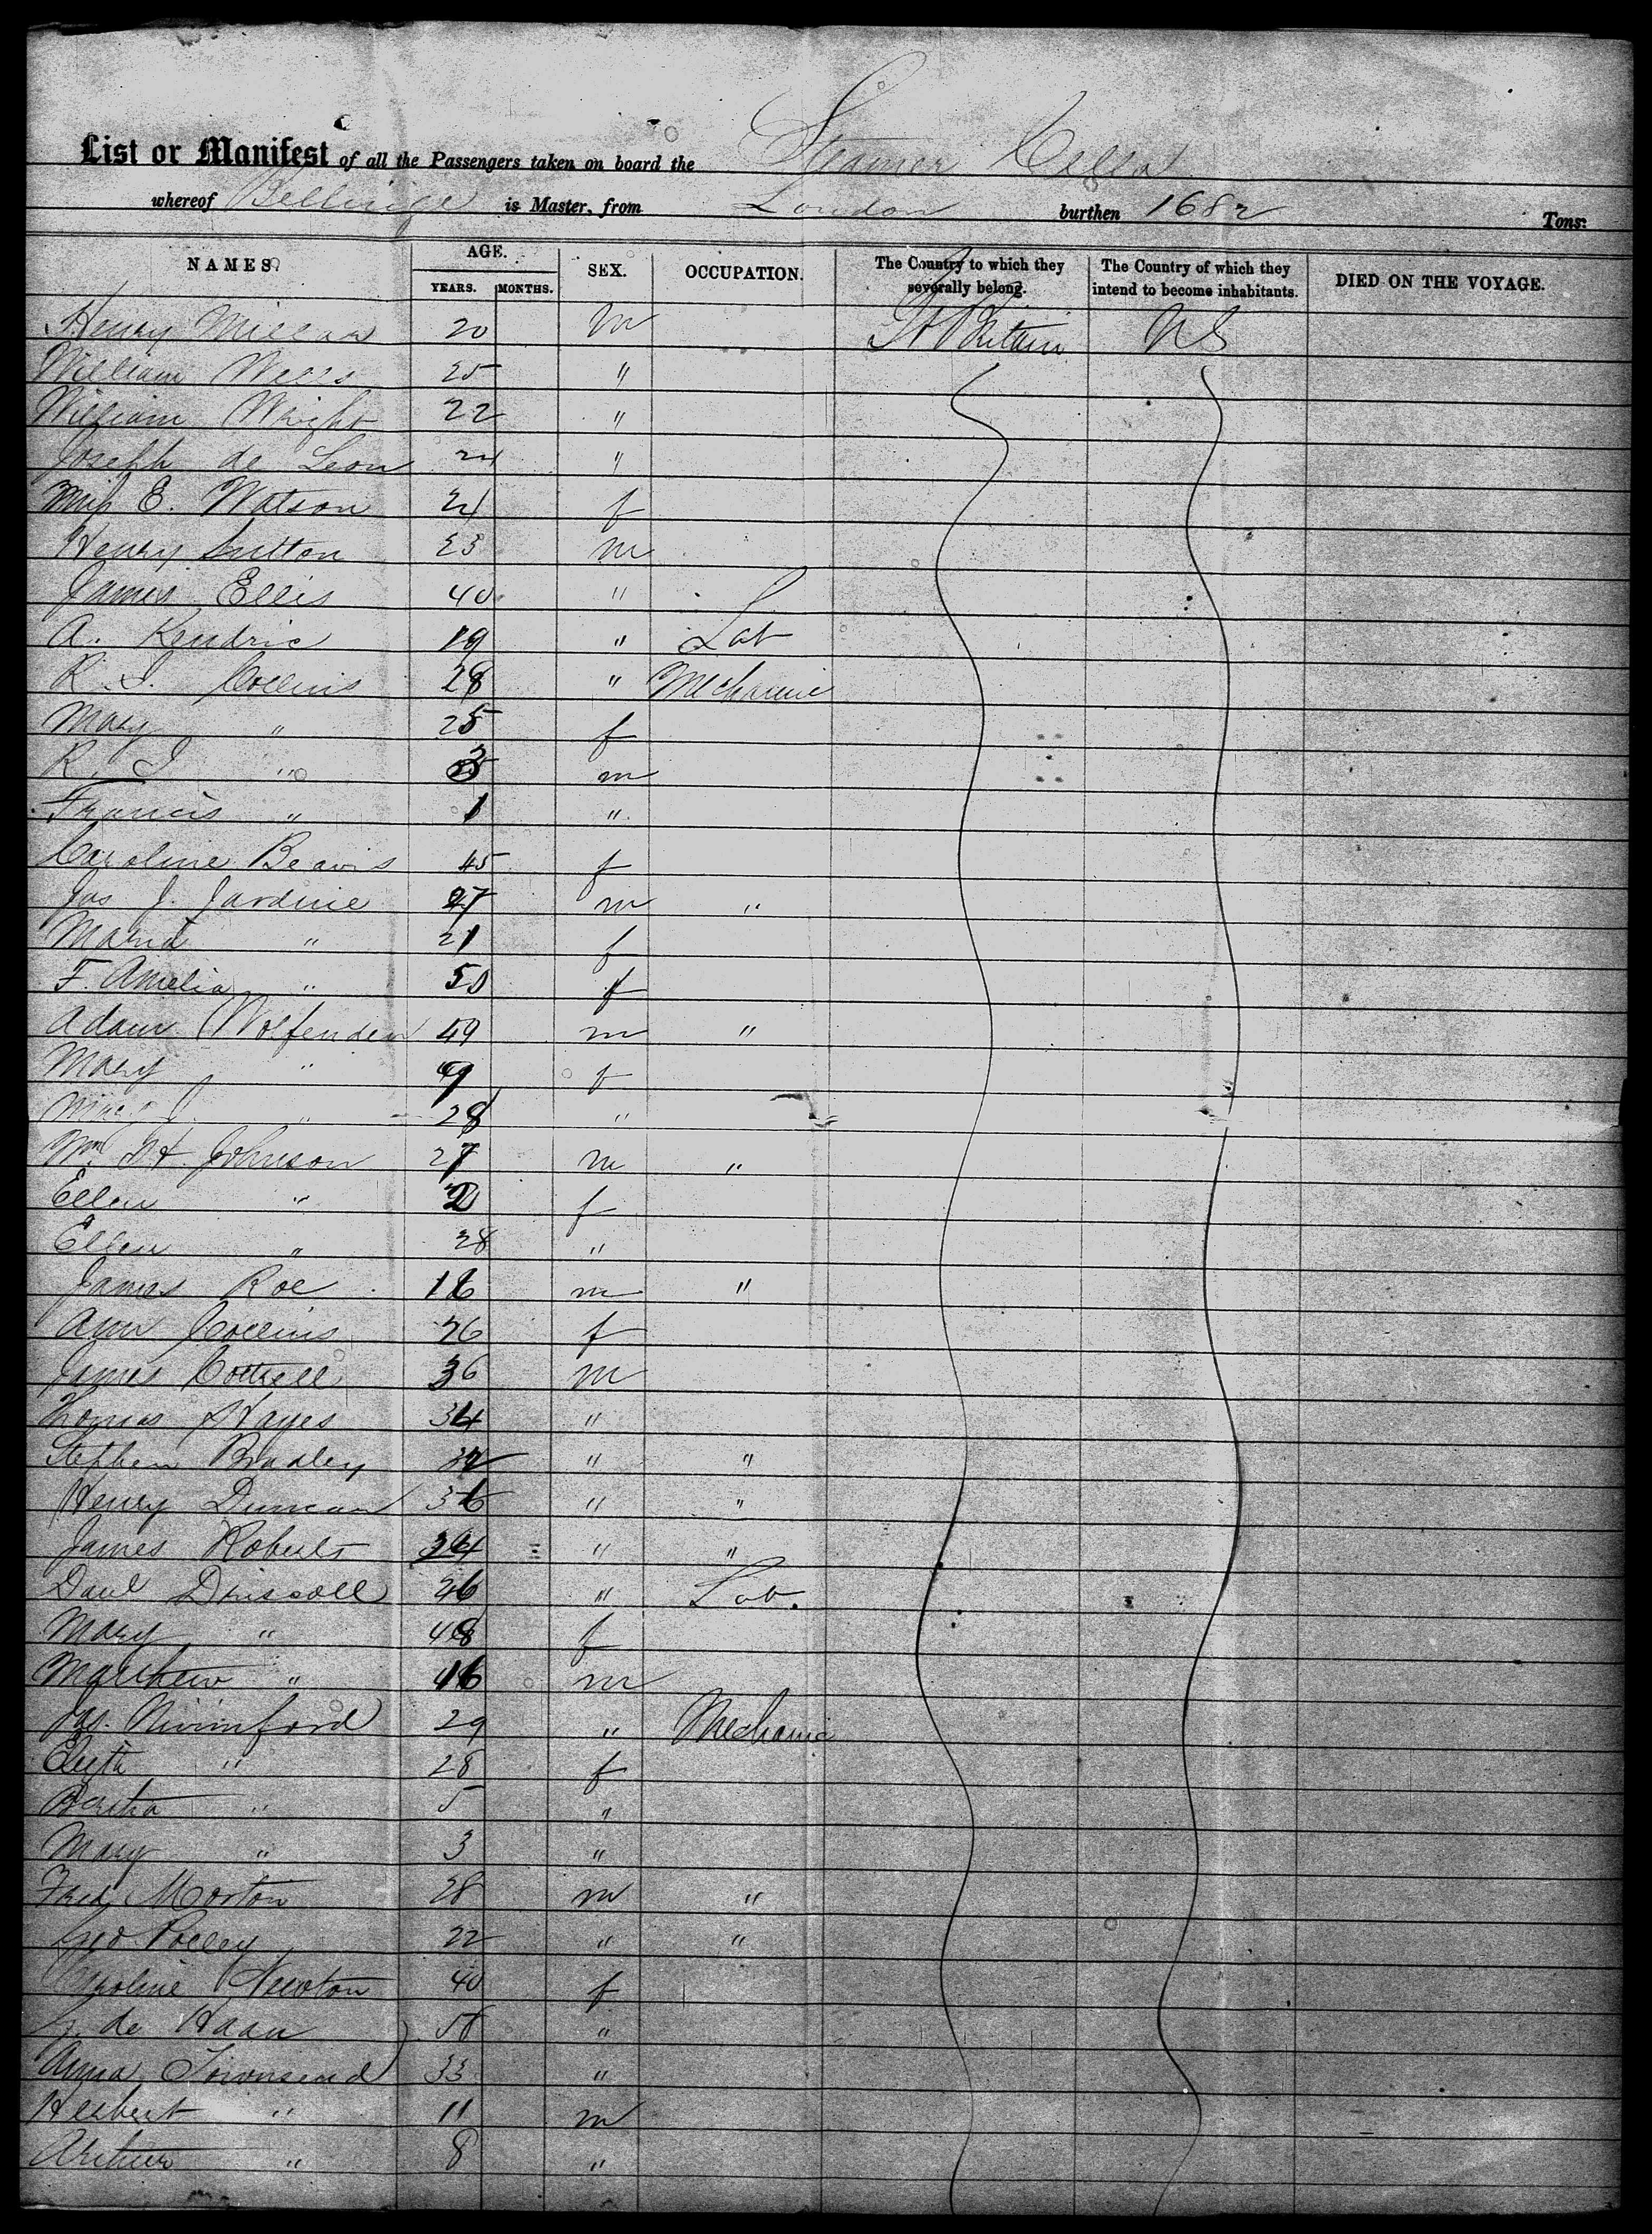 List or Manifest of all the Passengers taken on board the Steamer Cella
whereof Bellinge is Master, from London burthen 1682 Tons:
NAMES. AGE. YEARS. MONTHS. SEX. OCCUPATION. The Country to which they severally belong. The Country of which they intend to become inhabitants. DIED ON THE VOYAGE.
Henry Millar 20 m Gt Britain US
William Wells 25 "
William Wright 22 "
Joseph de Leon 24 "
Miss E. Watson 24 f
Henry Sutton 23 m
James Ellis 40 "
A. Kendric 19 " Lab
R. J. Collins 28 " Mechanic
Mary " 25 f
R. J " m
Francis " 1 "
Caroline Beavis 45 f
Jas J. Jardine 27 m "
Maria " 21 f
F. Amelia " 50 f
Adam Wolfenden 49 m "
Mary " f
" 28 "
Wm H. Johnson 27 m "
Ellen " f
Ellen " 28 "
James Roe 16 m "
Ann Collins 26 f
James Cottrell 36 m
Thomas Hayes 34 "
Stephen Bradley 32 " "
Henry Duncan 36 " "
James Roberts 34 " "
Danl Driscoll 46 " Lab.
Mary " 48 f
Matthew " 16 m
Jas. Nivinford 29 " Mechanic
Elizth " 28 f
Bertha " 5 "
Mary " 3 "
Fred Morton 28 m "
Geo Polley 22 " "
Caroline Newton 40 f
de Haan "
Anna Townsend 33 "
Herbert " 11 m
Arthur " 8 "